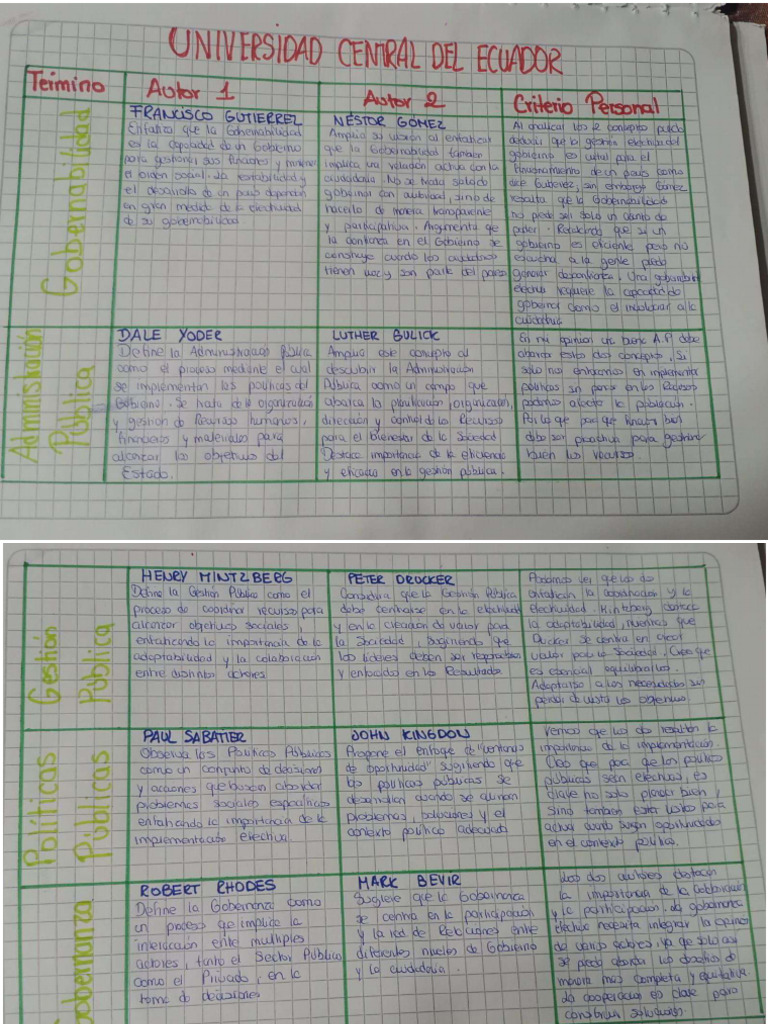 UNIVERSIDAD CENTRAL DEL ECUADOR
Termino
Autor 1
Autor 2
Criterio Personal
Gobernabilidad
FRANCISCO GUTIERREZ
Enfatiza que la Gobernabilidad
es la capacidad de un Gobierno
para gestionar sus funciones y mantener
el orden social. La estabilidad y
el desarrollo de un país dependen
en gran medida de la efectividad
de su gobernabilidad
NÉSTOR GOMEZ
Amplia su visión al enfatizar
que la Gobernabilidad también
implica una relación activa con la
ciudadanía. No se trata solo de
gobernar con autoridad, sino de
hacerlo de manera transparente
y participativa. Argumenta que
la confianza en el Gobierno se
construye cuando los ciudadanos
tienen voz y son parte del proceso
Al analizar los 2 concepto puedo
deducir que la gestión efectividad del
gobierno es crucial para el
funcionamiento de un país como
dice Gutierrez, sin embargo Gómez
resalta que la Gobernabilidad
no puede ser solo un asunto de
poder. Recalcando que si un
gobierno es eficiente pero no
escucha a la gente puede
generar desconfianza. Una gobernabilidad
efectiva requiere la capacidad de
gobernar como el involucrar a la
ciudadanía
Administración
Pública
DALE YODER
Define la Administración Pública
como el proceso mediante el cual
se implementan las políticas del
Gobierno. Se trata de la organización
y gestión de Recursos humanos,
financieros y materiales para
alcanzar los objetivos del
Estado.
LUTHER GULICK
Amplia este concepto al
describir la Administración
Pública como un campo que
abarca la planificación, organización,
dirección y control de la Recursos
para el bienestar de la Sociedad
Destaca importancia de la eficiencia
y eficacia en la gestión pública.
En mi opinión una buena A.P debe
abarcar estos dos conceptos, Si
solo nos enfocamos en implementar
políticas sin pensar en los Recursos
podemos afectar la población.
Por lo que para que funcione bien
debe ser proactiva para gestionar
bien los recursos.
Gestión
Pública
HENRY MINTZBERG
Define la Gestión Pública como el
proceso de coordinar recursos para
alcanzar objetivos sociales,
enfatizando la importancia de la
adaptabilidad y la colaboración
entre distintos actores
PETER DRUCKER
Considera que la Gestión Pública
debe centrarse en la efectividad
y en la creación de valor para
la Sociedad, sugiriendo que
los líderes deben ser responsables
y enfocados en los Resultados
Podemos ver que los dos
enfatizan la coordinación y la
Efectividad. Mintzberg destaca
la adaptabilidad, mientras que
Drucker se centra en crear
valor para la Sociedad. Creo que
es esencial equilibrarlos.
Adaptarse a las necesidades sin
perder de vista los objetivos
Políticas
Públicas
PAUL SABATIER
Observa las Políticas Públicas
como un conjunto de decisiones
y acciones que buscan abordar
problemas sociales específicos
enfatizando la importancia de la
implementación efectiva.
JOHN KINGDON
Propone el enfoque de "ventanas
de oportunidad" sugiriendo que
las políticas públicas se
desarrollan cuando se alinean
problemas, soluciones y el
contexto político adecuado
Vemos que los dos resaltan la
importancia de la implementación.
Creo que para que las políticas
públicas sean efectivas, es
clave no solo planear bien,
sino también estar listos para
actuar cuando surjan oportunidades
en el contexto político.
Gobernanza
ROBERT RHODES
Define la Gobernanza como
un proceso que implica la
interacción entre múltiples
actores, tanto el Sector Público
como el Privado, en la
toma de decisiones
MARK BEVIR
Sugiere que la Gobernanza
se centra en la participación
y la red de Relaciones entre
diferentes niveles de Gobierno
y la ciudadanía.
Los dos autores destacan
la importancia de la colaboración
y la participación. La gobernanza
efectiva necesita integrar la
de varios actores, ya que solo así
se puede abordar los desafíos de
manera más completa y equitativa.
La cooperación es clave para
construir soluciones.